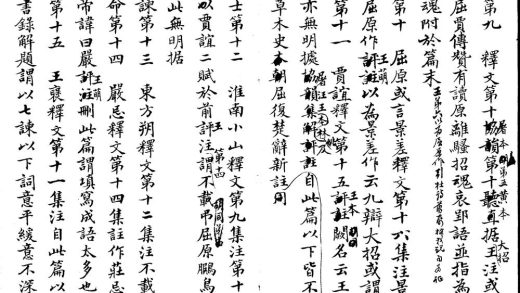 第九 釋文第十協韻第十聽直据王注或
屈賈傳贊有讀原離騷招魂哀郢語並指為
魂附於篇末
第十 屈原或言景差釋文第十六集注景
屈原作評註以為景差作云九辯大招或謂
第十一 賈誼釋文第十五評註闕名云王
亦無明據協韻集解評註自此篇以下皆不
草木史 屈復楚辭新註同
士第十二 淮南小山釋文第九集注第十
以賈誼二賦於前評注謂不載弔屈原鵬鳥
此無明据
諫第十三 東方朔釋文第十二集注不載
命第十四 嚴忌釋文第十四集註作莊忌
帝諱曰嚴評註刪此篇謂填寫成語太多也
第十五 王褒釋文第十一集注自此篇以
書錄解題謂以七諫以下詞意平緩意不深